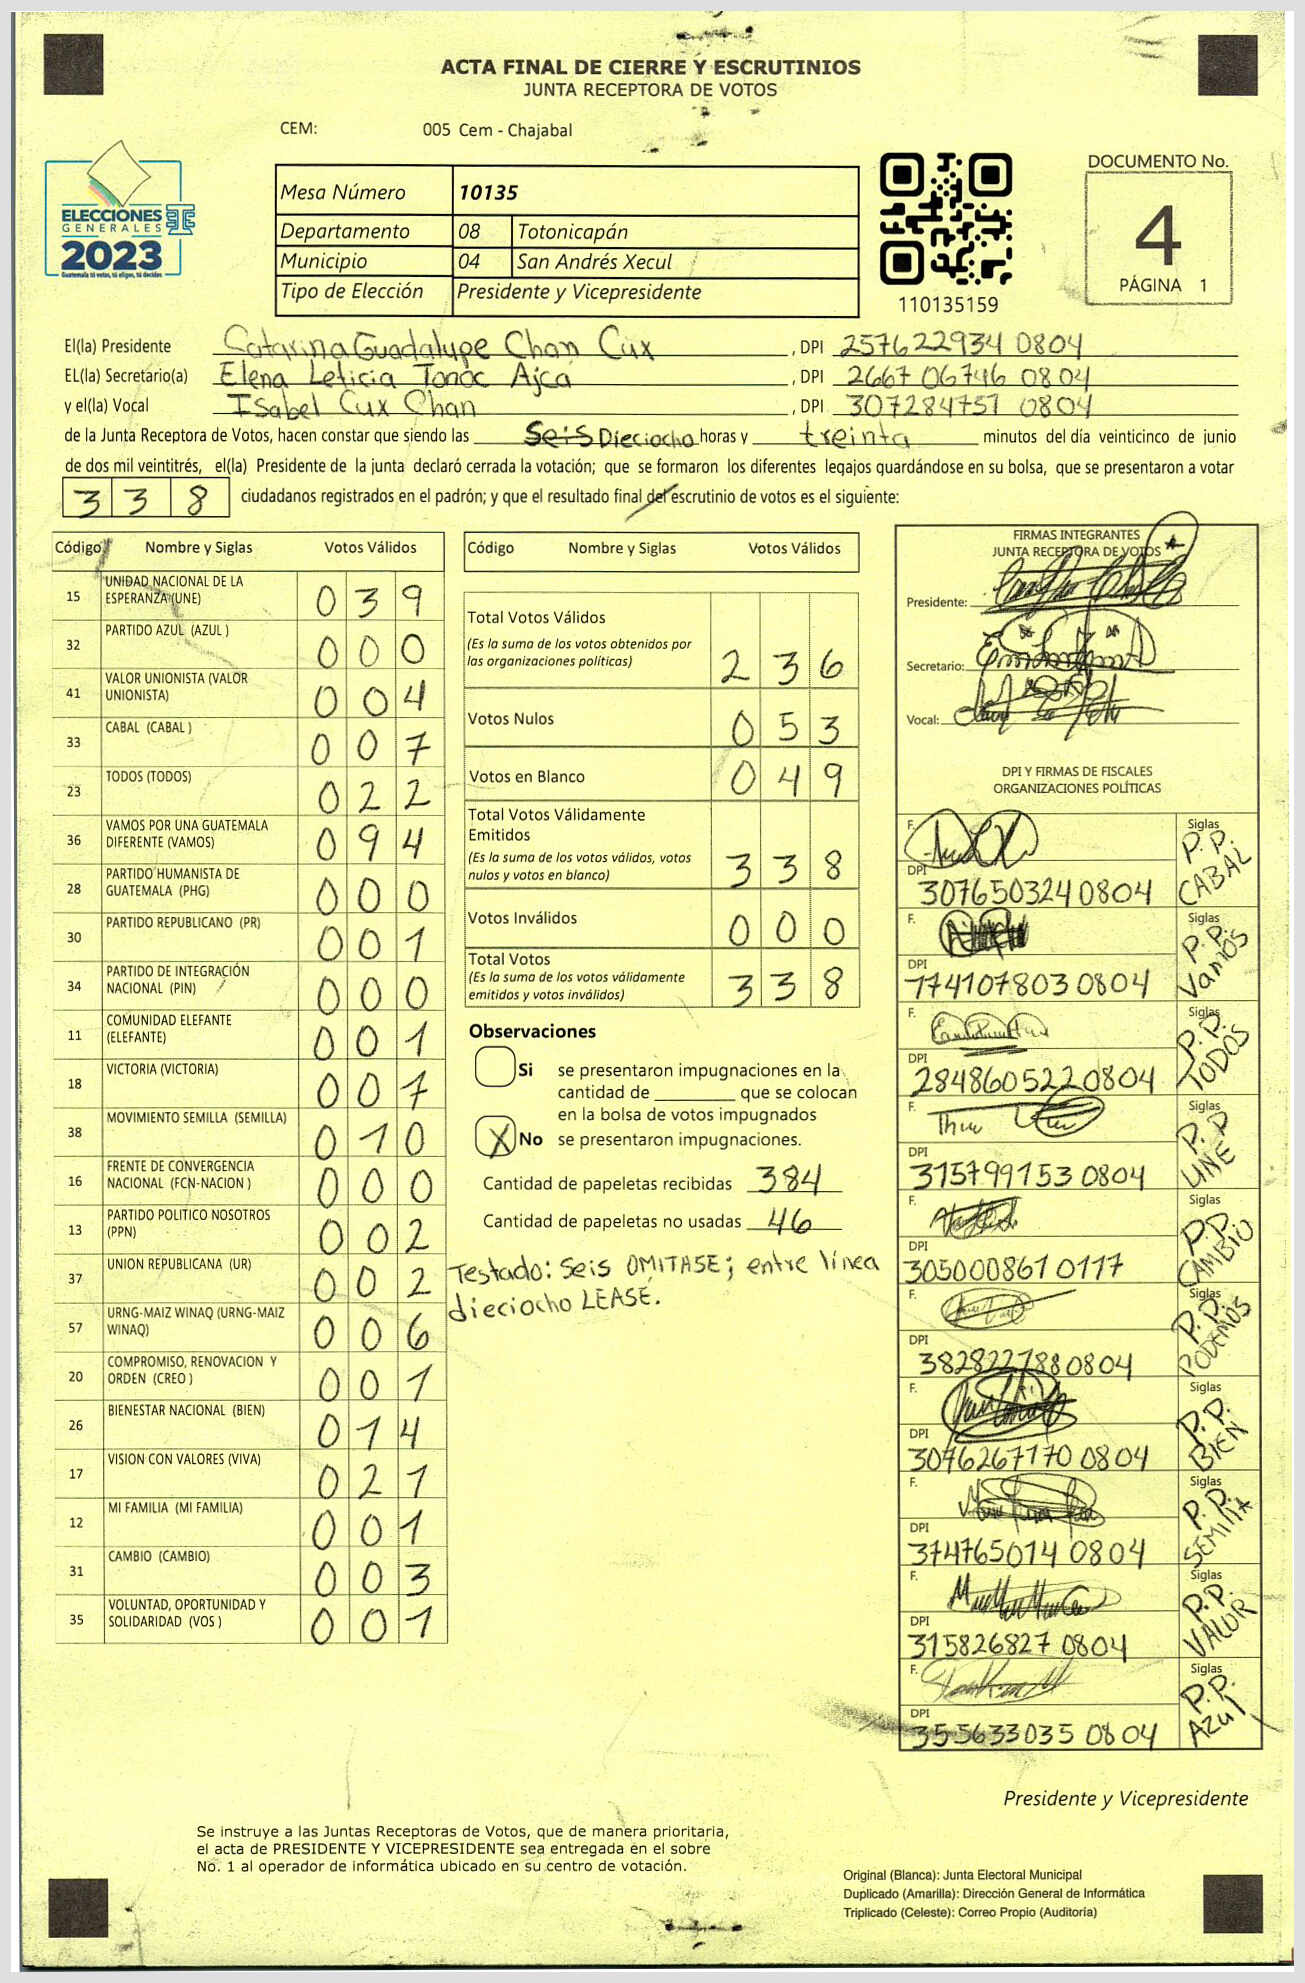 ACTA FINAL DE CIERRE Y ESCRUTINIOS
JUNTA RECEPTORA DE VOTOS
CEM: 005 Cem - Chajabal
ELECCIONES
GENERALES
2023
Guatemala tú votas, tú eliges, tú decides
Mesa Número 10135
Departamento 08 Totonicapán
Municipio 04 San Andrés Xecul
Tipo de Elección Presidente y Vicepresidente
110135159
DOCUMENTO No.
4
PÁGINA 1
El(la) Presidente Catarina Guadalupe Chan Cux , DPI 257622934 0804
EL(la) Secretario(a) Elena Leticia Tonoc Ajca , DPI 2667 06746 0804
y el(la) Vocal Isabel Cux Chan , DPI 307284751 0804
de la Junta Receptora de Votos, hacen constar que siendo las Seis Dieciocho horas y treinta minutos del día veinticinco de junio
de dos mil veintitrés, el(la) Presidente de la junta declaró cerrada la votación; que se formaron los diferentes legajos guardándose en su bolsa, que se presentaron a votar
3 3 8 ciudadanos registrados en el padrón; y que el resultado final del escrutinio de votos es el siguiente:
Código Nombre y Siglas Votos Válidos
15 UNIDAD NACIONAL DE LA ESPERANZA (UNE) 0 3 9
32 PARTIDO AZUL (AZUL ) 0 0 0
41 VALOR UNIONISTA (VALOR UNIONISTA) 0 0 4
33 CABAL (CABAL ) 0 0 7
23 TODOS (TODOS) 0 2 2
36 VAMOS POR UNA GUATEMALA DIFERENTE (VAMOS) 0 9 4
28 PARTIDO HUMANISTA DE GUATEMALA (PHG) 0 0 0
30 PARTIDO REPUBLICANO (PR) 0 0 1
34 PARTIDO DE INTEGRACIÓN NACIONAL (PIN) 0 0 0
11 COMUNIDAD ELEFANTE (ELEFANTE) 0 0 1
18 VICTORIA (VICTORIA) 0 0 7
38 MOVIMIENTO SEMILLA (SEMILLA) 0 1 0
16 FRENTE DE CONVERGENCIA NACIONAL (FCN-NACION ) 0 0 0
13 PARTIDO POLITICO NOSOTROS (PPN) 0 0 2
37 UNION REPUBLICANA (UR) 0 0 2
57 URNG-MAIZ WINAQ (URNG-MAIZ WINAQ) 0 0 6
20 COMPROMISO, RENOVACION Y ORDEN (CREO ) 0 0 1
26 BIENESTAR NACIONAL (BIEN) 0 1 4
17 VISION CON VALORES (VIVA) 0 2 1
12 MI FAMILIA (MI FAMILIA) 0 0 1
31 CAMBIO (CAMBIO) 0 0 3
35 VOLUNTAD, OPORTUNIDAD Y SOLIDARIDAD (VOS ) 0 0 1
Código Nombre y Siglas Votos Válidos
Total Votos Válidos
(Es la suma de los votos obtenidos por
las organizaciones políticas) 2 3 6
Votos Nulos 0 5 3
Votos en Blanco 0 4 9
Total Votos Válidamente
Emitidos
(Es la suma de los votos válidos, votos
nulos y votos en blanco) 3 3 8
Votos Inválidos 0 0 0
Total Votos
(Es la suma de los votos válidamente
emitidos y votos inválidos) 3 3 8
Observaciones
Si se presentaron impugnaciones en la
cantidad de ________ que se colocan
en la bolsa de votos impugnados
X No se presentaron impugnaciones.
Cantidad de papeletas recibidas 384
Cantidad de papeletas no usadas 46
Testado: Seis OMITASE; entre línea
dieciocho LEASE.
FIRMAS INTEGRANTES
JUNTA RECEPTORA DE VOTOS
Presidente:
Secretario:
Vocal:
DPI Y FIRMAS DE FISCALES
ORGANIZACIONES POLÍTICAS
F. Siglas P.P. CABAL
DPI 307650324 0804
F. Siglas P.P. Vamos
DPI 1741078030804
F. Siglas P.P. TODOS
DPI 2848605220804
F. Siglas P.P UNE
DPI 315799153 0804
F. Siglas P.P. CAMBIO
DPI 305000861 0117
F. Siglas P.P. PODEMOS
DPI 3828227880804
F. Siglas P.P. BIEN
DPI 3076267170 0804
F. Siglas P.P. SEMILLA
DPI 374765014 0804
F. Siglas P.P. VALOR
DPI 315826827 0804
F. Siglas P.P. Azul
DPI 355633035 0804
Presidente y Vicepresidente
Se instruye a las Juntas Receptoras de Votos, que de manera prioritaria,
el acta de PRESIDENTE Y VICEPRESIDENTE sea entregada en el sobre
No. 1 al operador de informática ubicado en su centro de votación.
Original (Blanca): Junta Electoral Municipal
Duplicado (Amarilla): Dirección General de Informática
Triplicado (Celeste): Correo Propio (Auditoría)